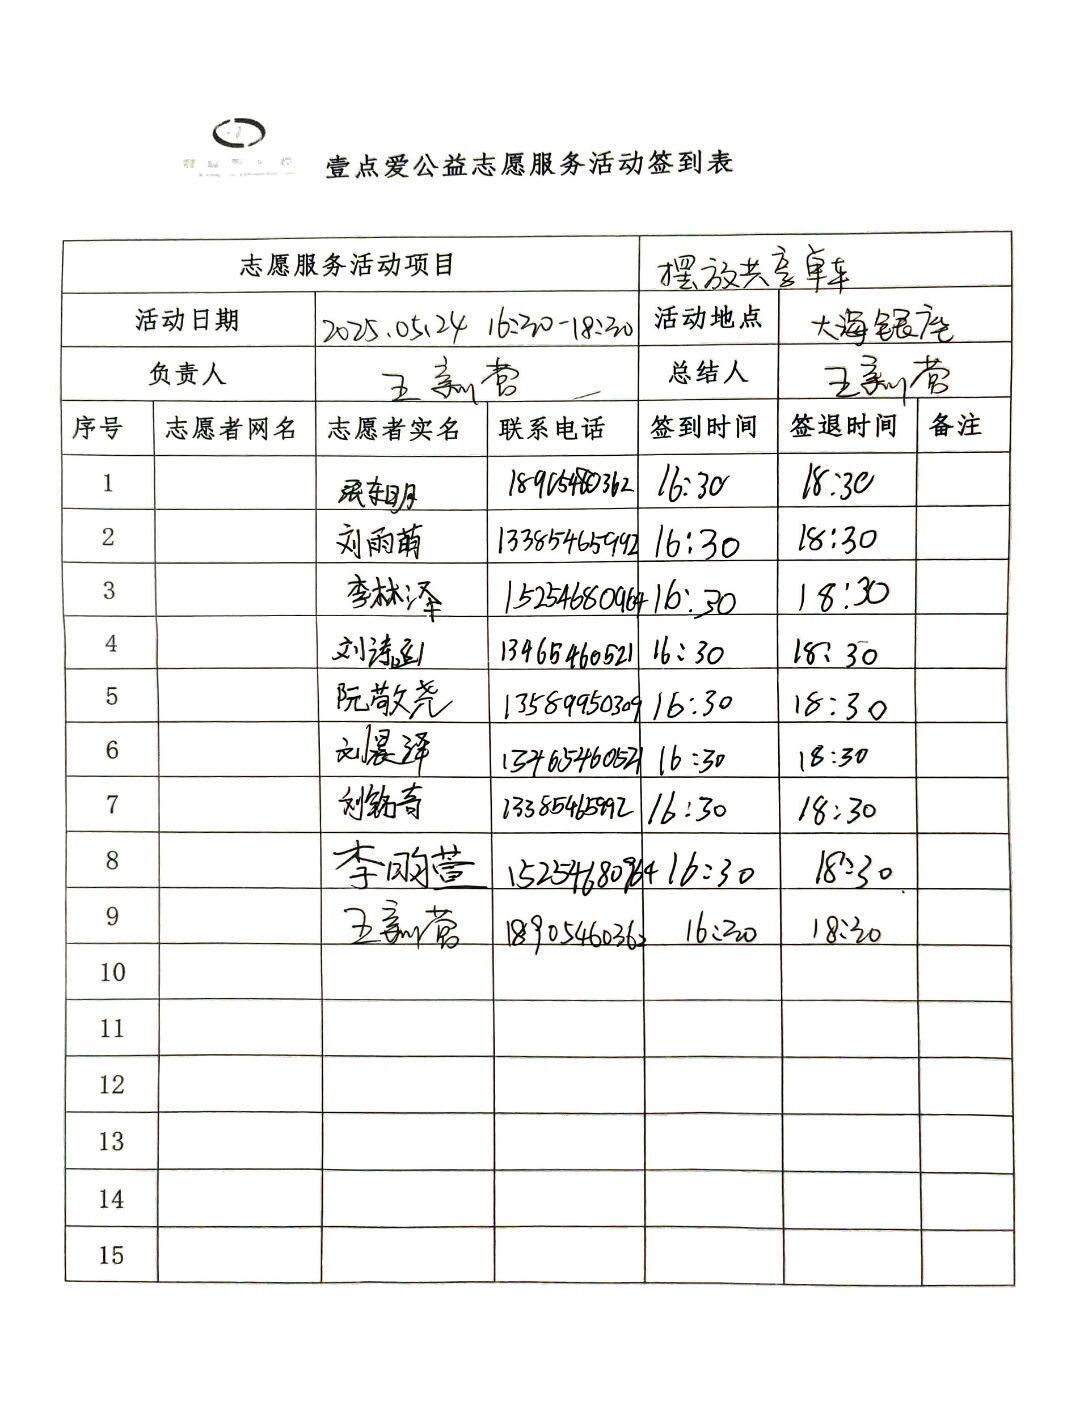 壹点爱公益志愿服务活动签到表
志愿服务活动项目 摆放共享单车
活动日期 2025.05.24 16:30-18:30 活动地点 大海银座
负责人 王新营 总结人 王新营
序号 志愿者网名 志愿者实名 联系电话 签到时间 签退时间 备注
1 16:30 18:30
2 刘雨萌 13385465992 16:30 18:30
3 李林泽 15254680964 16:30 18:30
4 刘诗函 13465460521 16:30 18:30
5 阮敬尧 13589950309 16:30 18:30
6 刘晨泽 13465460521 16:30 18:30
7 刘铭奇 13385465992 16:30 18:30
8 李雨萱 15254680964 16:30 18:30
9 王新营 16:30 18:30
10
11
12
13
14
15